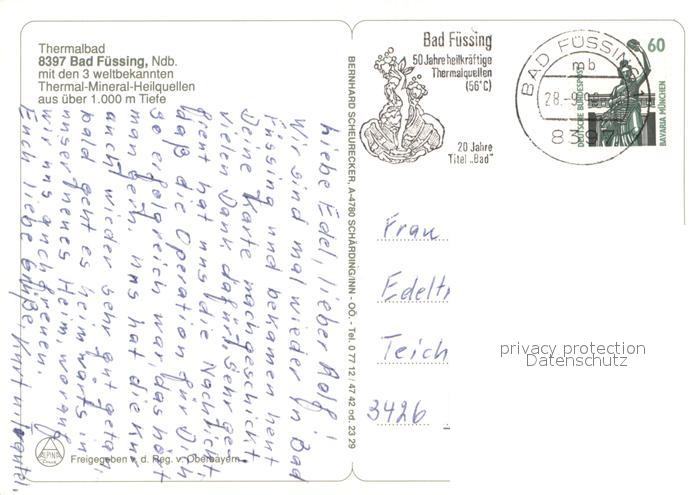 Thermalbad
8397 Bad Füssing, Ndb.
mit den 3 weltbekannten
Thermal-Mineral-Heilquellen
aus über 1.000 m Tiefe
Liebe Edel, lieber Rolf!
Wir sind mal wieder in Bad
Füssing und bekamen heut
Deine Karte nachgeschickt
vielen Dank dafür. Sehr ge-
freut hat uns die Nachricht,
daß die Operation für Dich
so erfolgreich war, das hört
man gern. Uns hat die Kur
auch wieder sehr gut getan,
bald geht es heimwärts in
unser neues Heim, worauf
wir uns auch freuen.
Euch liebe Grüße, Kurt u.
Freigegeben v. d. Reg. v. Oberbayern
BERNHARD SCHEURECKER, A-4780 SCHÄRDING/INN - OÖ. - Tel. 0 77 12 / 47 42 od. 23 29
Bad Füssing
50 Jahre heilkräftige
Thermalquellen
(56°C)
20 Jahre
Titel „Bad"
BAD FÜSSING
mb
28.-9.
8397
60
DEUTSCHE BUNDESPOST
BAVARIA MÜNCHEN
Frau
Edeltr
Teich
3426
privacy protection
Datenschutz